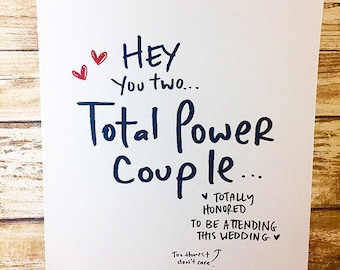 HEY
YOU TWO...
Total Power
Couple...
♥ TOTALLY
HONORED
TO BE ATTENDING
THIS WEDDING ♥
Too Honest
don't care!